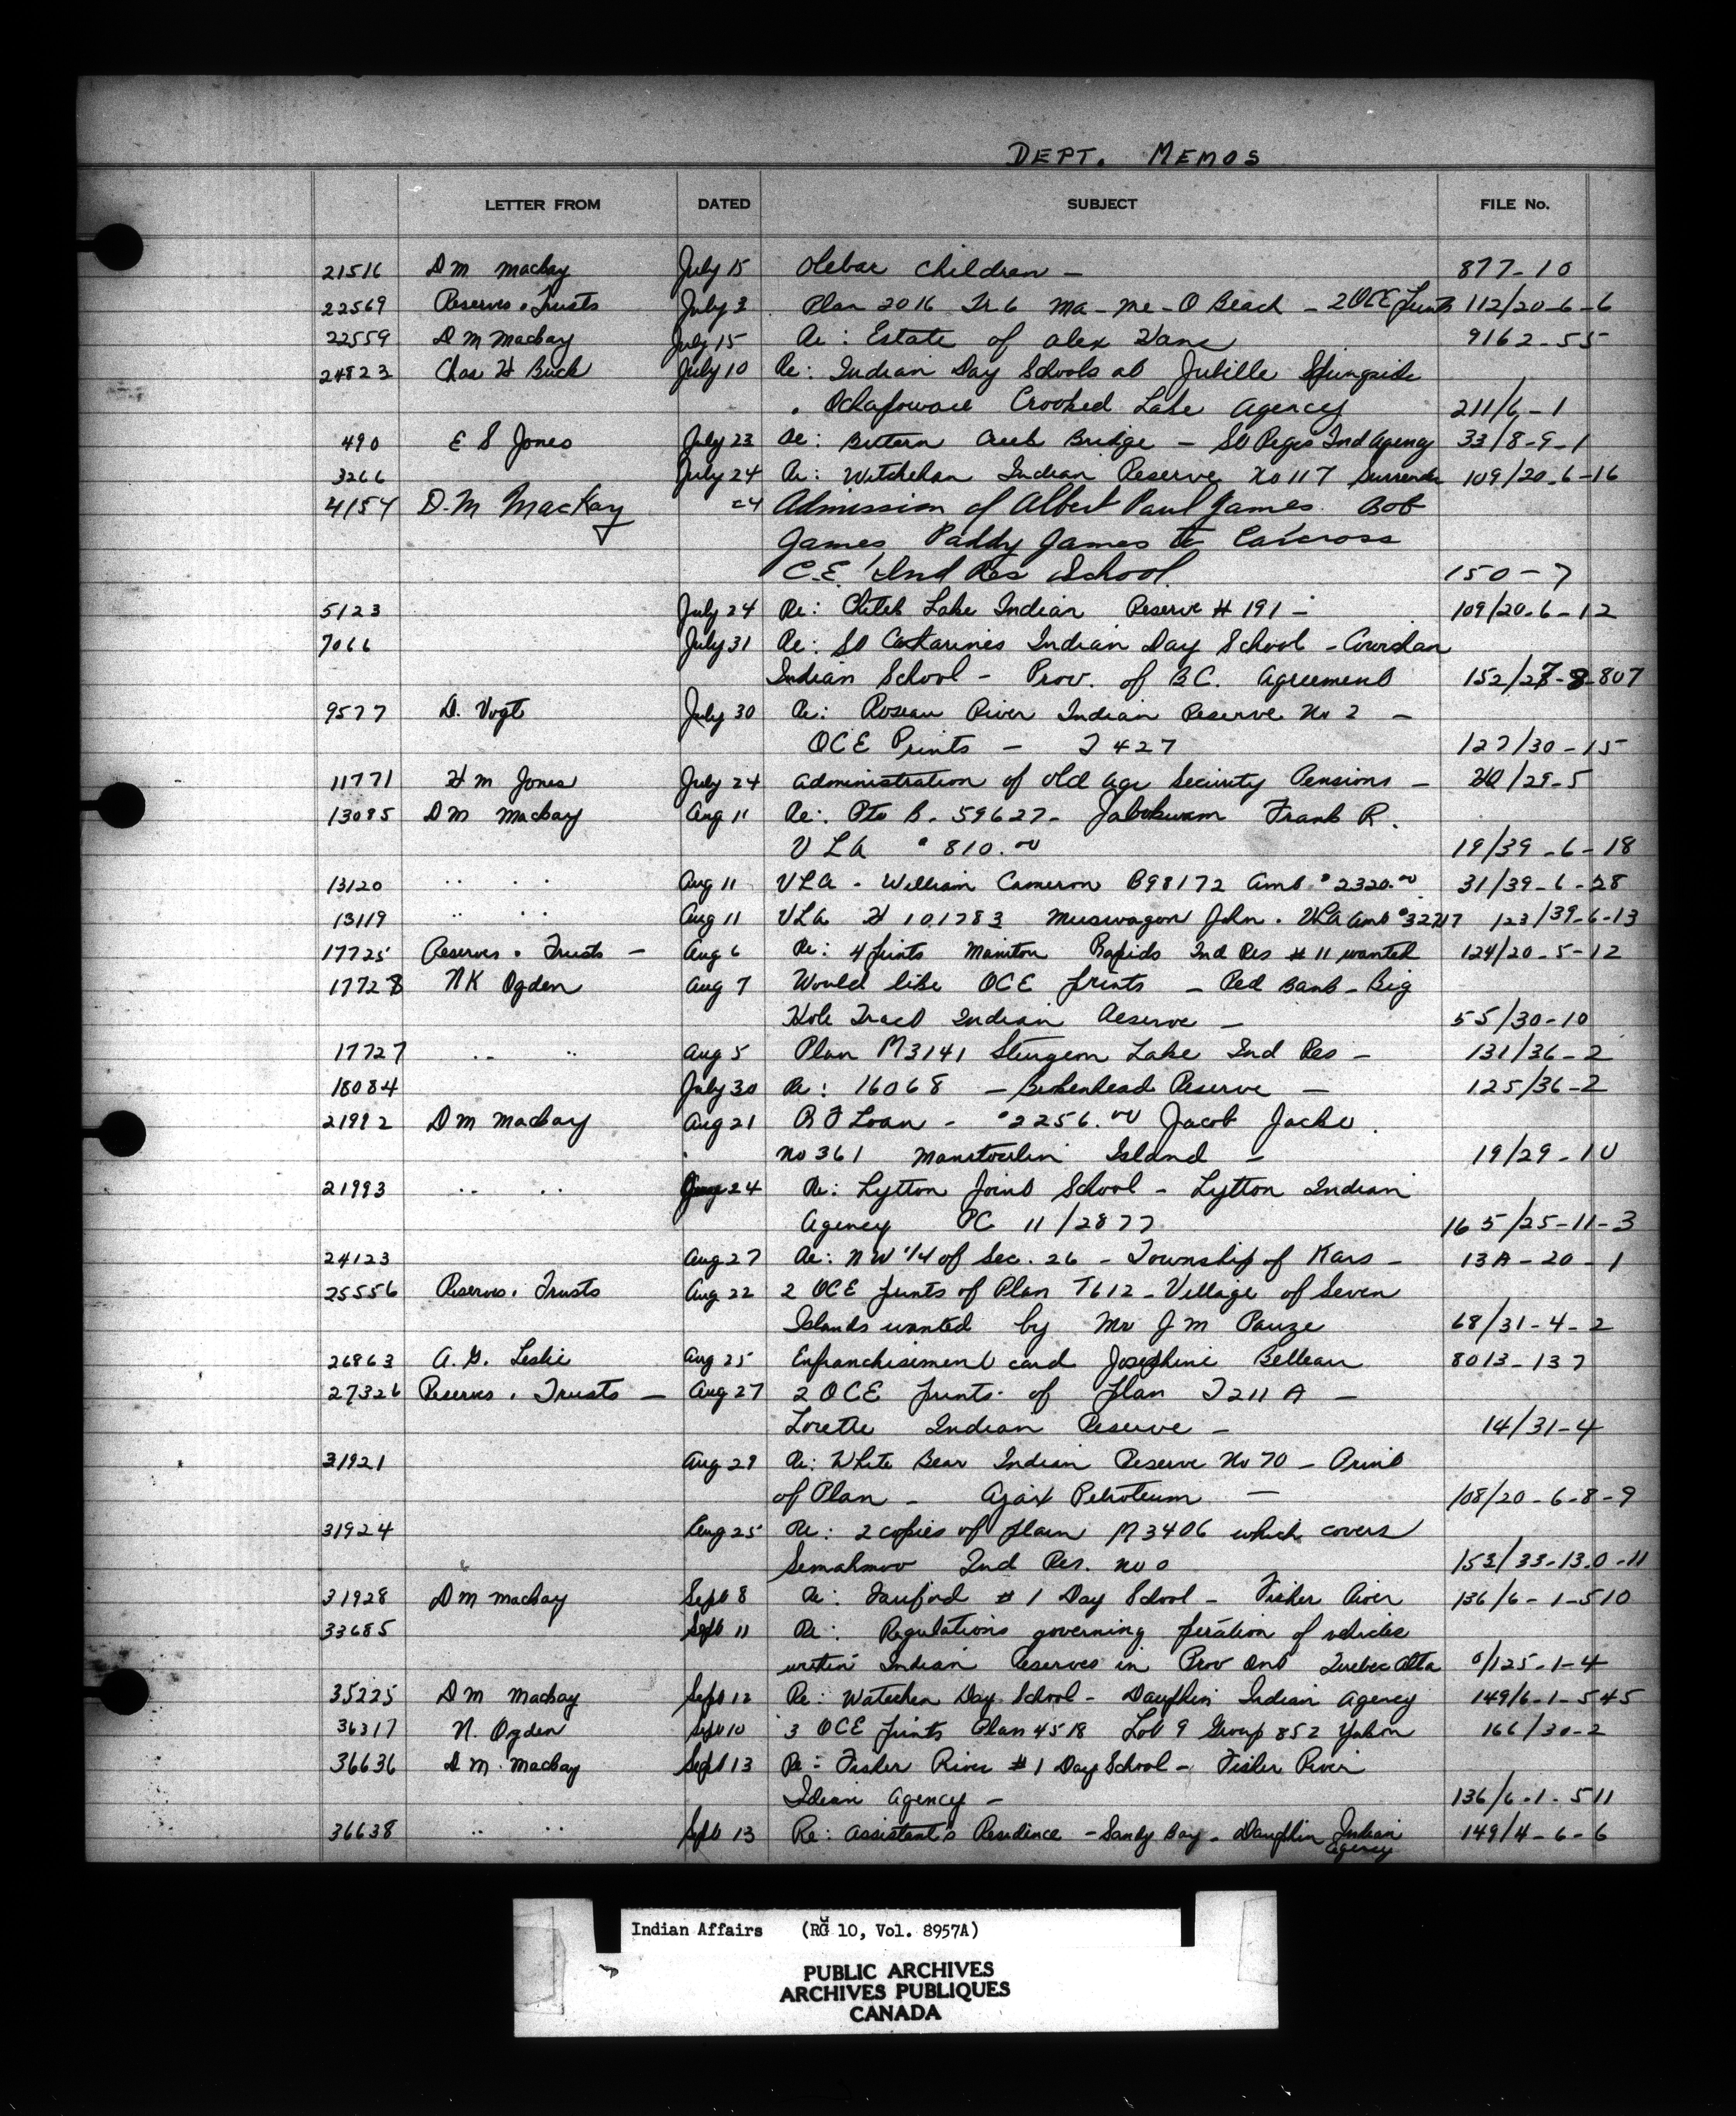 DEPT. MEMOS
LETTER FROM DATED SUBJECT FILE No.
21516 D M MacKay July 15 Olebar Children - 877-10
22569 Reserves & Trusts July 3 Plan 2016 Tr 6 Ma-Me-O Beach - 2 OCE prints 112/20-6-6
22559 D M MacKay July 15 Re: Estate of Alex 9162-55
24823 Chas H Buck July 10 Re: Indian Day Schools at Jubille Springside
& Ochapowace Crooked Lake Agency 211/6-1
490 E S Jones July 23 Re: Creek Bridge - St Regis Ind Agency 33/8-9-1
3266 July 24 Re: Witchekan Indian Reserve No 117 Surrender 109/20-6-16
4154 D.M MacKay 24 Admission of Albert Paul James Bob
James, Paddy James to Carcross
C.E. Ind Res School 150-7
5123 July 24 Re: Chitek Lake Indian Reserve # 191 - 109/20-6-12
7066 July 31 Re: St Catharines Indian Day School - Cowichan
Indian School - Prov. of B.C. Agreement 152/27-8-807
9577 D. Vogt July 30 Re: Roseau River Indian Reserve No 2 -
OCE Prints - T 427 127/30-15
11771 H M Jones July 24 Administration of Old Age Security Pensions - /29-5
13085 D M MacKay Aug 11 Re: Pte B-59627- Frank R.
V L A $810.00 19/39-6-18
13120 " " Aug 11 VLA - William Cameron B98172 Amt $2320.00 31/39-6-28
13119 " " Aug 11 VLA H 101783 Muswagon John. VLA Amt 123/39-6-13
17725 Reserves & Trusts - Aug 6 Re: 4 prints Manitou Rapids Ind Res # 11 wanted 124/20-5-12
17728 NK Ogden Aug 7 Would like OCE prints - Red Bank - Big
Hole Tract Indian Reserve - 55/30-10
17727 " " Aug 5 Plan M3141 Sturgeon Lake Ind Res - 131/36-2
18084 July 30 Re: 16068 - Brokenhead Reserve - 125/36-2
21992 D M MacKay Aug 21 R F Loan - $2256.00 Jacob Jacko.
No 361 Manitoulin Island - 19/29-10
21993 " " 24 Re: Lytton Joint School - Lytton Indian
Agency PC 11/2877 165/25-11-3
24123 Aug 27 Re: NW 1/4 of Sec. 26 - Township of Kars - 13A-20-1
25556 Reserves & Trusts Aug 22 2 OCE prints of Plan T612 - Village of Seven
Islands wanted by Mr J M Pauze 68/31-4-2
26863 A. G. Leslie Aug 25 Enfranchisement card Josephine Belleau 8013-137
27326 Reserves & Trusts - Aug 27 2 OCE prints of plan T211 A -
Lorette Indian Reserve - 14/31-4
31921 Aug 29 Re: White Bear Indian Reserve No 70 - Print
of Plan - Ajax Petroleum - 108/20-6-8-9
31924 Aug 25 Re: 2 copies of plan M3406 which covers
Semahmoo Ind Res. No 0 153/33-13.0-11
31928 D M MacKay Sept 8 Re: Fairford # 1 Day School - Fisher River 136/6-1-510
33685 Sept 11 Re: Regulations governing peration of vehicles
within Indian Reserves in Prov Ont Quebec Alta 0/125-1-4
35225 D M MacKay Sept 12 Re: Waterhen Day School - Dauphin Indian Agency 149/6-1-545
36317 N. Ogden Sept 10 3 OCE prints Plan 4518 Lot 9 Group 852 Yukon 166/30-2
36636 D M. MacKay Sept 13 Re: Fisher River # 1 Day School - Fisher River
Idian Agency - 136/6-1-511
36638 " " Sept 13 Re: Assistant's Residence - Sandy Bay - Dauphin Indian 149/4-6-6
Agency
Indian Affairs (RG 10, Vol. 8957A)
PUBLIC ARCHIVES
ARCHIVES PUBLIQUES
CANADA